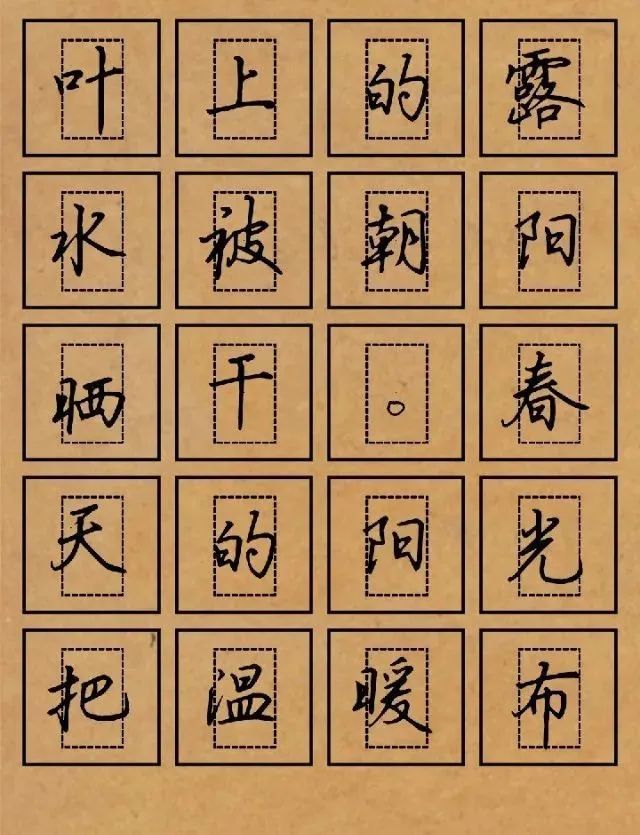 叶上的露
水被朝阳
晒干。春
天的阳光
把温暖布